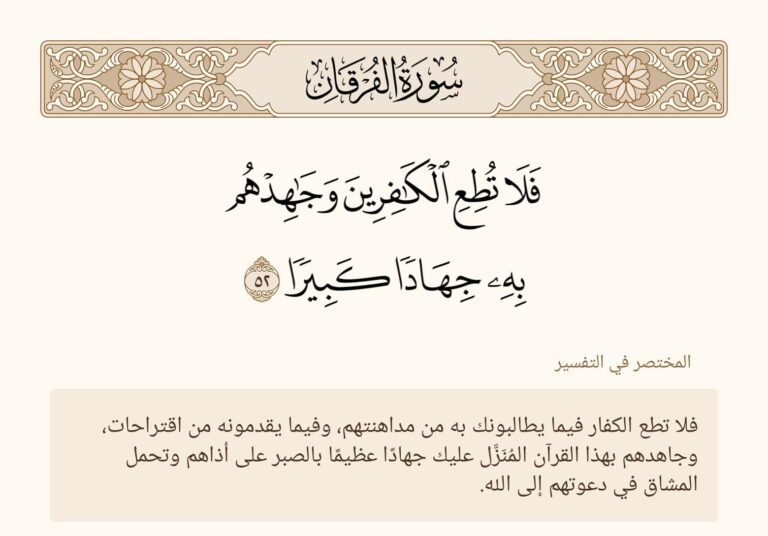 سُورَةُ الفُرْقَانِ
فَلَا تُطِعِ ٱلْكَـٰفِرِينَ وَجَـٰهِدْهُم
بِهِۦ جِهَادًا كَبِيرًا ٥٢
المختصر في التفسير
فلا تطع الكفار فيما يطالبونك به من مداهنتهم، وفيما يقدمونه من اقتراحات،
وجاهدهم بهذا القرآن المُنَزَّل عليك جهادًا عظيمًا بالصبر على أذاهم وتحمل
المشاق في دعوتهم إلى الله.